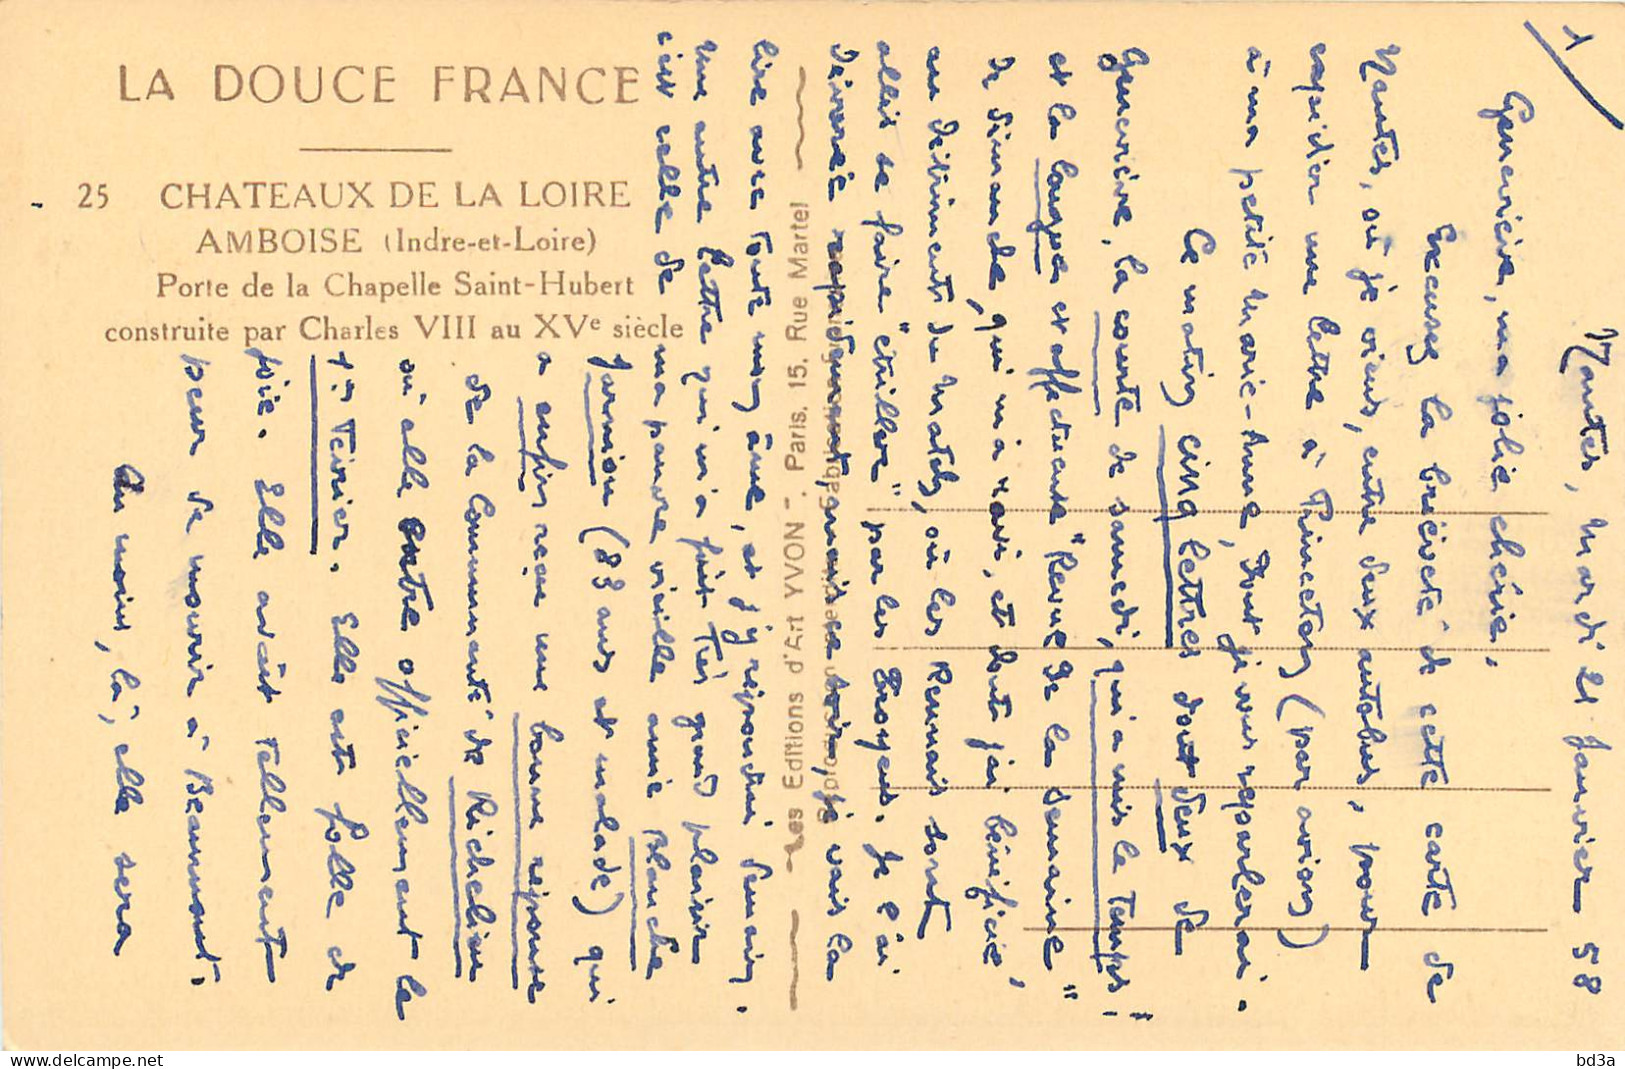 LA DOUCE FRANCE
25 CHATEAUX DE LA LOIRE
AMBOISE (Indre-et-Loire)
Porte de la Chapelle Saint-Hubert
construite par Charles VIII au XVe siècle
Les Editions d'Art YVON - Paris, 15, Rue Martel
1/
Nantes, Mardi 21 Janvier 58
Geneviève, ma jolie chérie,
Excusez la brièveté de cette carte de
Nantes, où je viens, entre deux autobus, pour
expédier une lettre à Princeton (par avion)
à ma petite Marie-Anne, dont je vous reparlerai.
Ce matin cinq lettres dont deux de
Geneviève, la courte de samedi, qui a mis le Temps!
et la longue et affectueuse "Revue de la Semaine"
de dimanche, qui m'a ravi, et dont j'ai bénéficié,
au détriment du match, où les Rennais sont
allés se faire "étriller" par les Troyens. Je l'ai
dévorée rapidement, mais ce soir, je vais la
lire avec toute mon âme, et j'y répondrai demain.
Une autre lettre qui m'a fait très grand plaisir
c'est celle de ma pauvre vieille amie Blanche
Jarniou (83 ans et malade) qui
a enfin reçu une bonne réponse
de la Communauté de Richelieu
où elle entre officiellement le
1er Février. Elle est folle de
joie. Elle avait tellement
peur de mourir à Beaumont.
Au moins, là, elle sera
bd3a